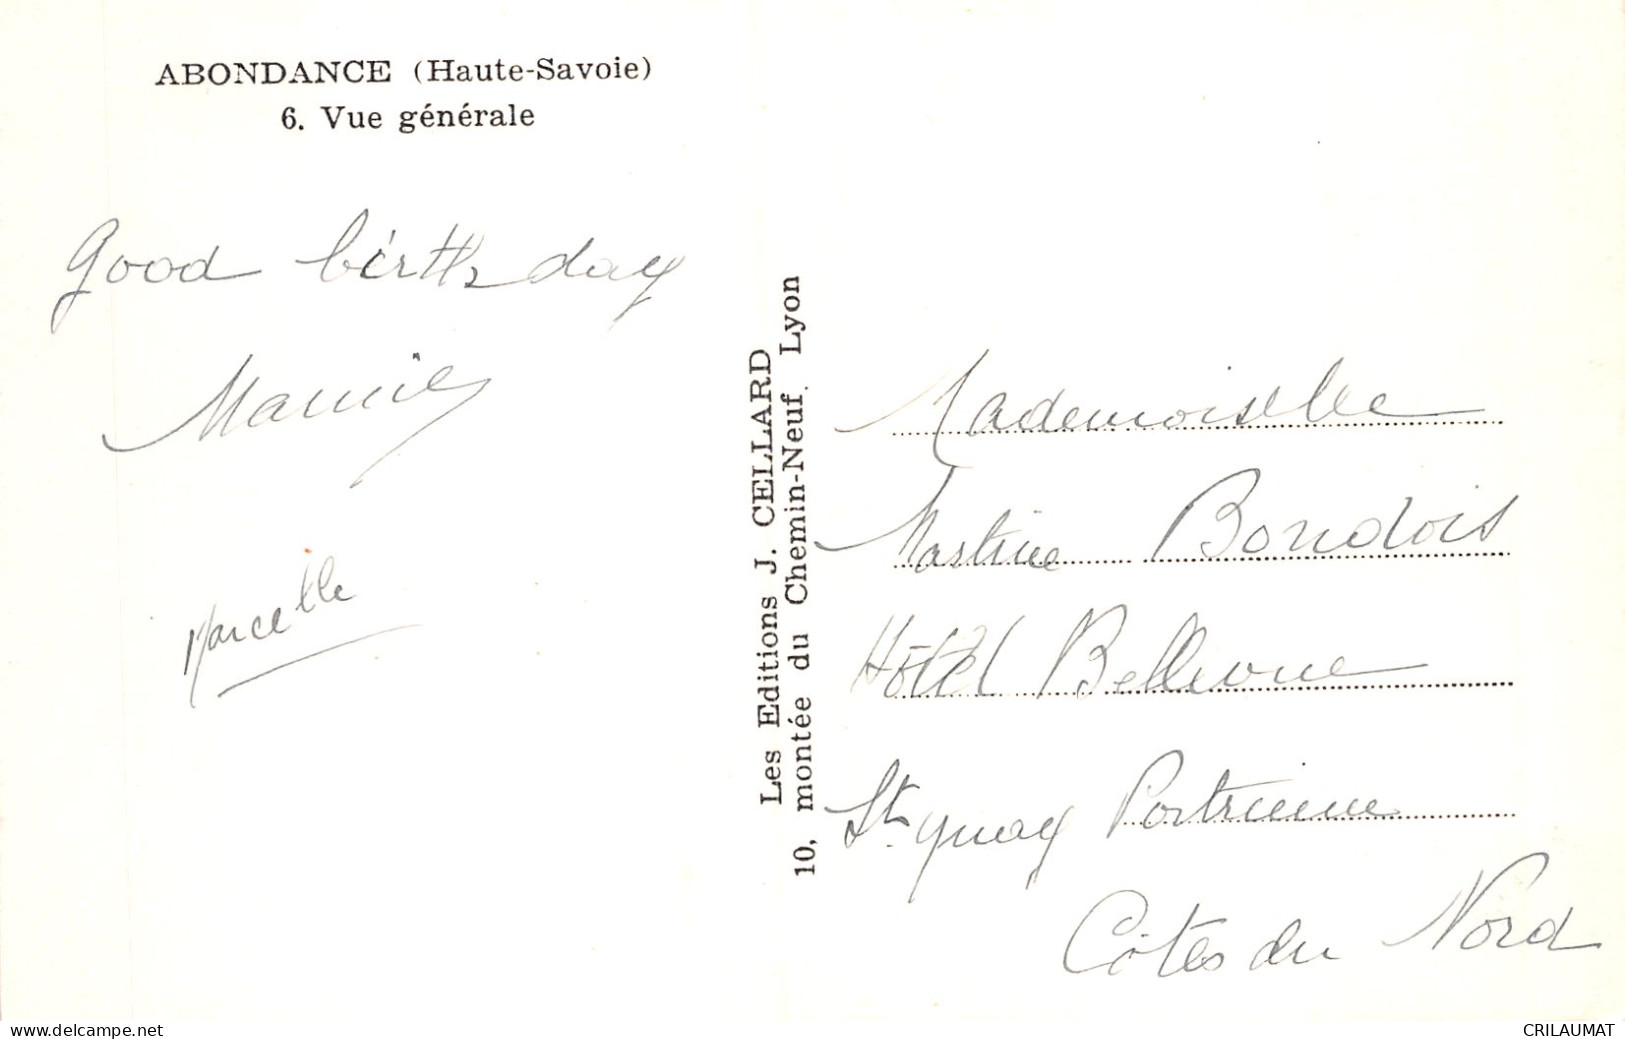 ABONDANCE (Haute-Savoie)
6. Vue générale
Good birthday
Marcelle
Les Editions J. CELLARD
10, montée du Chemin-Neuf. Lyon
Mademoiselle
Martine Bondois
Hôtel Bellevue
St. Quay Portrieux
Côtes du Nord
www.delcampe.net
CRILAUMAT